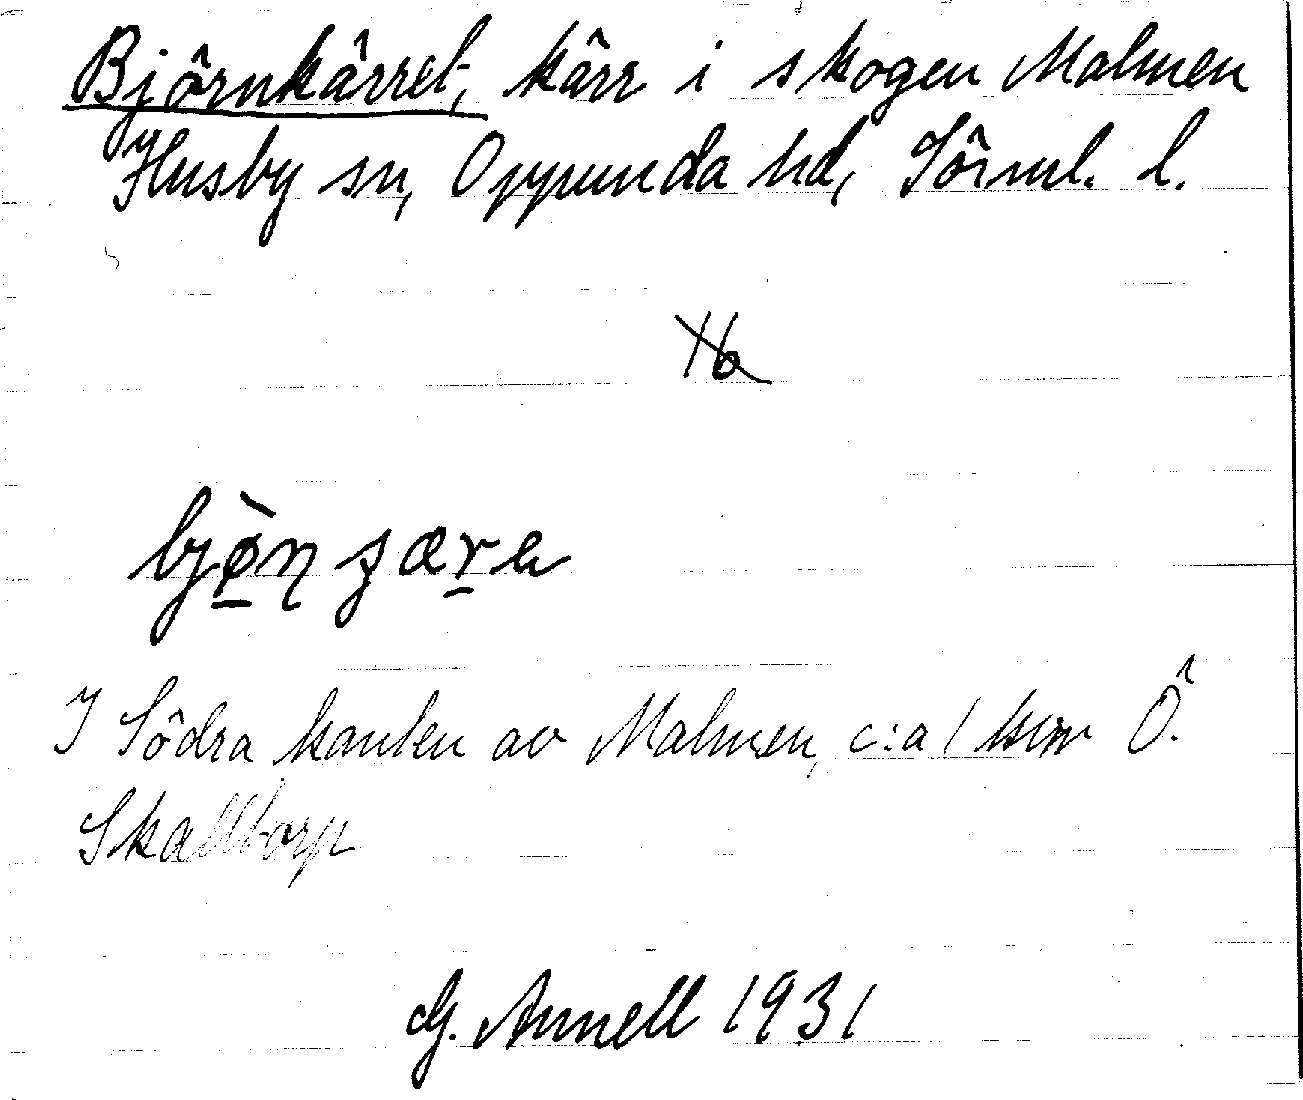 Björnkärret, kärr i skogen Malmen
Husby sn, Oppunda hd, Sörml. l.
bjø̀ṇʒær̠a
I Södra kanten av Malmen, c:a 1 km Ö.
Skalltorp
G. Annell 1931